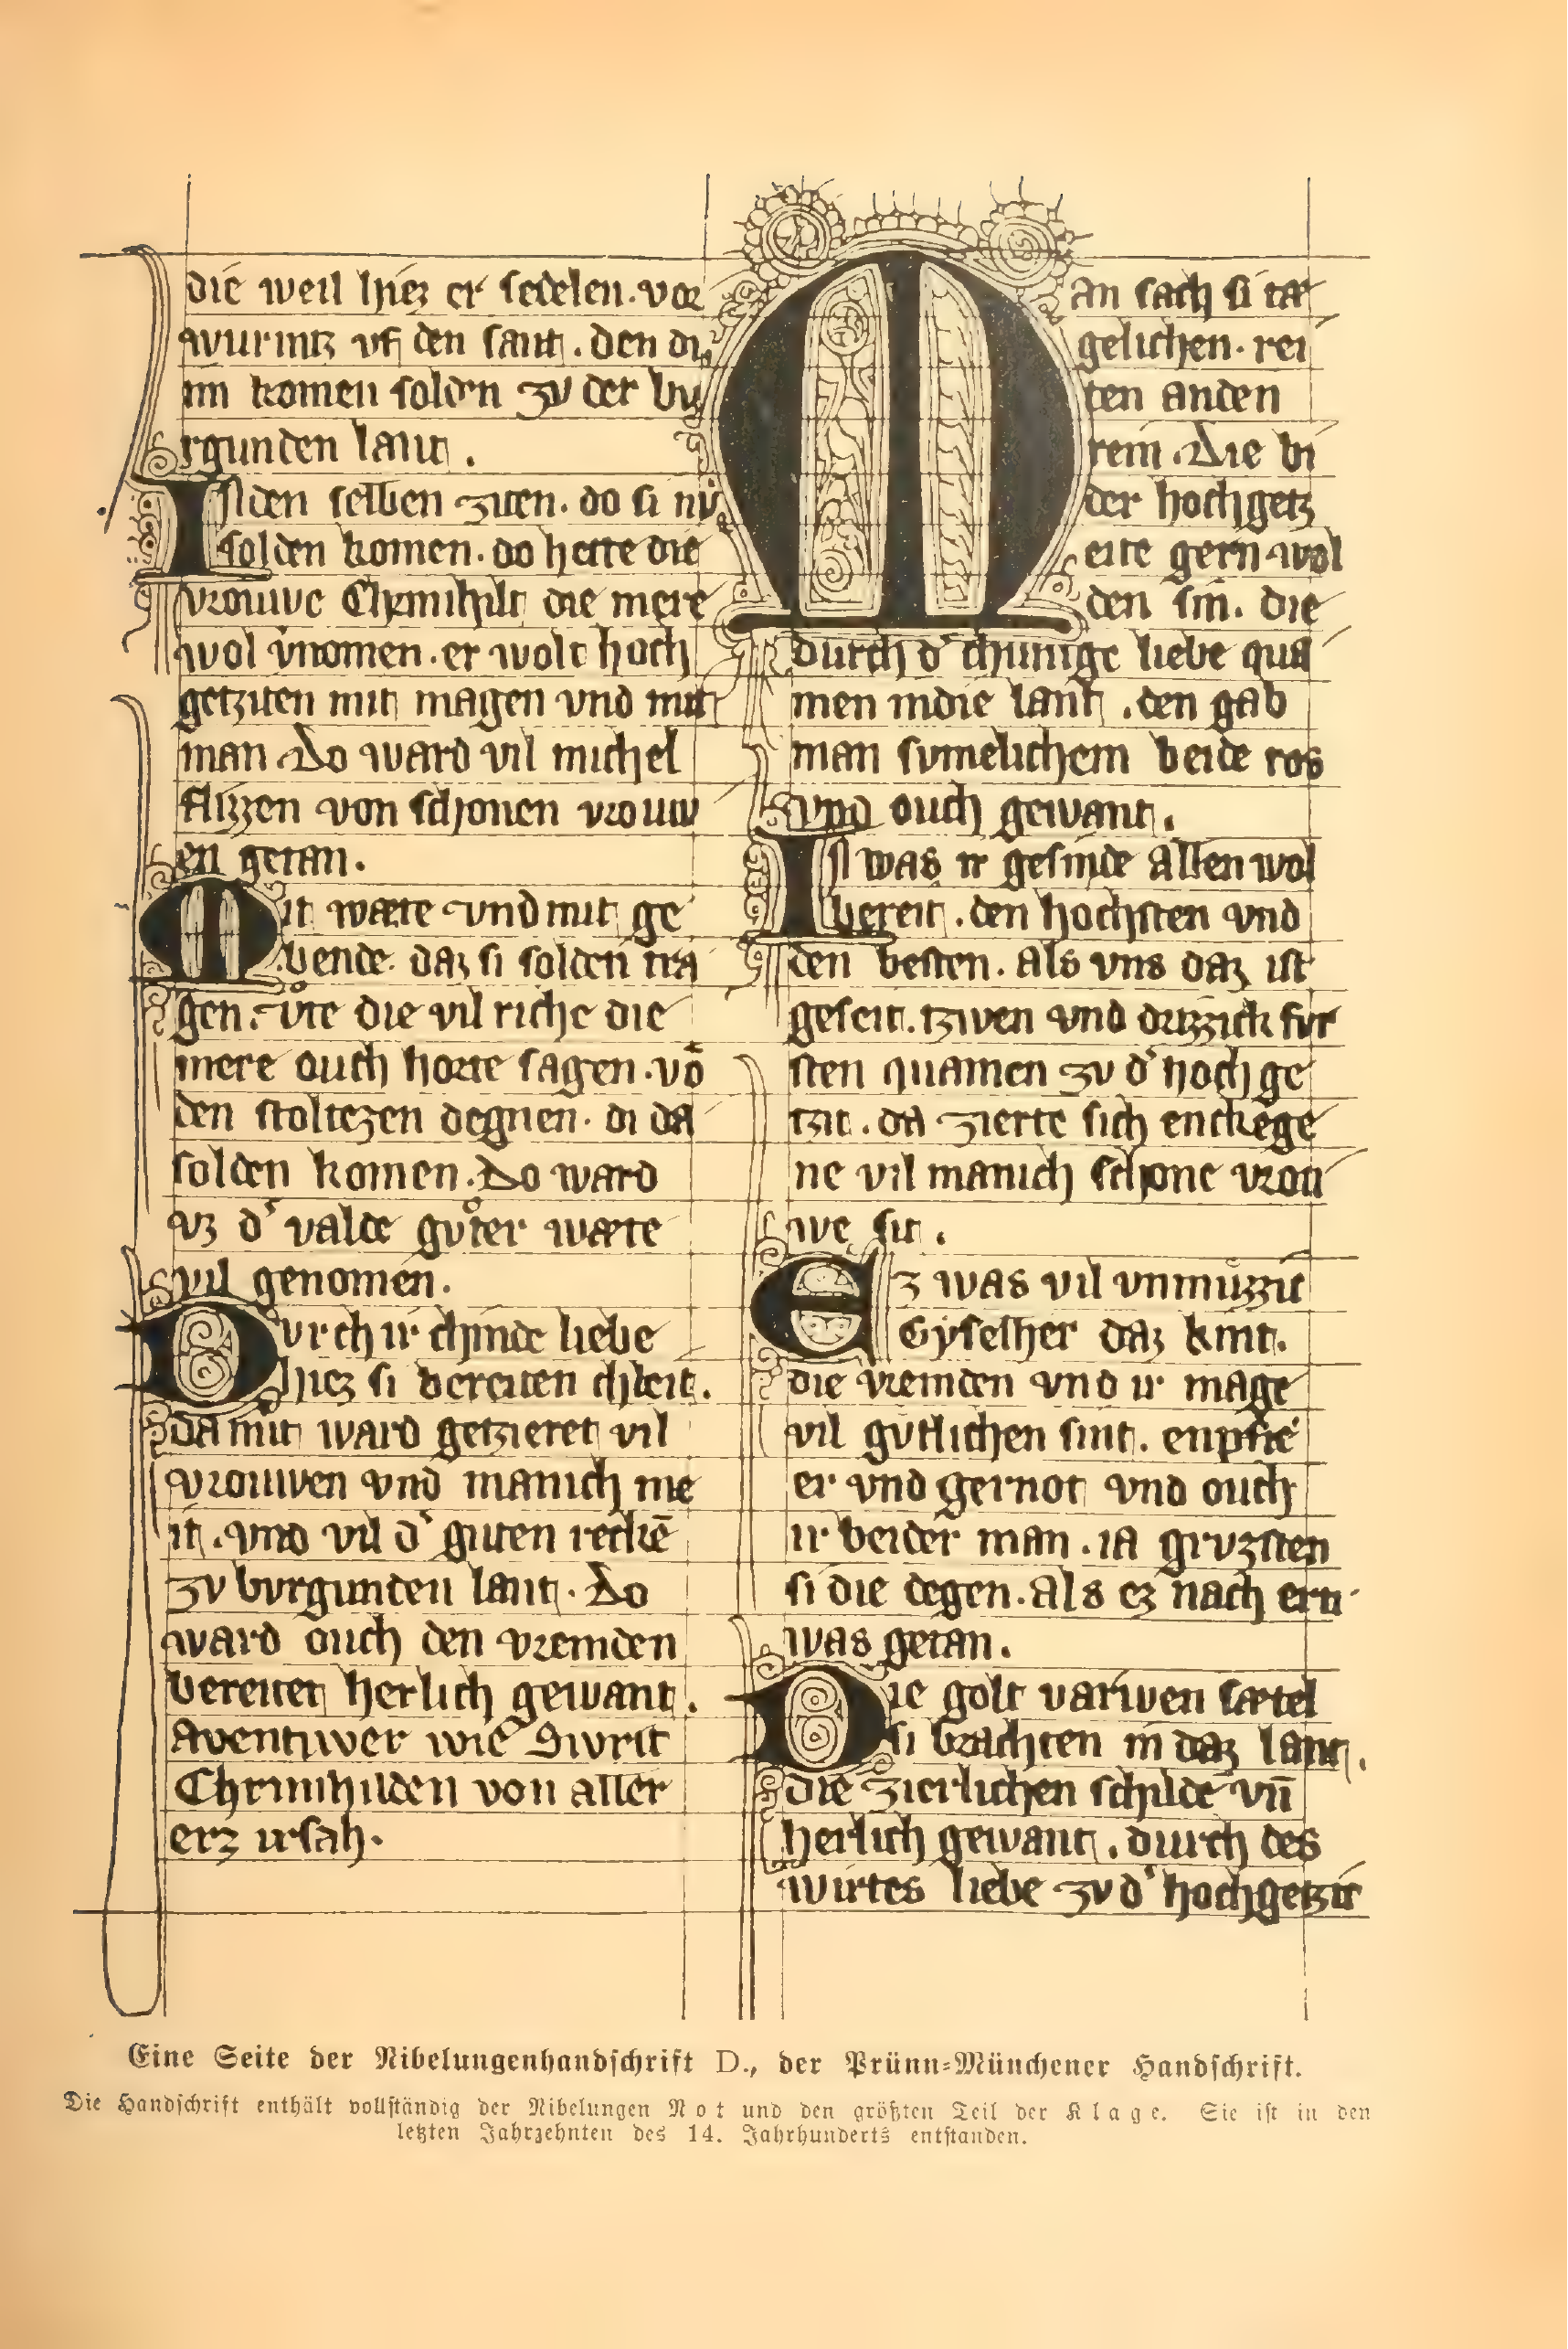 die weil hiez er sedelen. vor
wurmtz vf den sant. den di
im komen solden zv der bv
rgunden lant.
In den selben ziten. do si nv
solden komen. do hette die
vrouwe Chrimhilt die mere
wol vnomen. er wolt hoch
getziten mit magen vnd mit
man Do ward vil michel
flizzen von schonen vrouw
en getan.
Mit wæte vnd mit ge
bende. daz si solden tra
gen. vte die vil riche die
mere ouch horte sagen. vō
den stoltezen degnen. di da
solden komen. Do ward
vz d' valde gůter wæte
vil genomen.
Durch ir chinde liebe
hiez si bereiten chleit.
da mit ward getzieret vil
vrouwen vnd manich me
it. vnd vil d' guten reckē
zv burgunden lant. Do
ward ouch den vremden
bereitet herlich gewant.
Aventiwer wie Sivrit
Chrimhilden von aller
erz irsah.
Man sach si tæ
gelichen. rei
ten anden
rein. Die bi
der hochgetz
eite gern wol
den sin. die
durch d' chunige liebe qua
men indie lant. den gab
man sumelichem beide ros
vnd ouch gewant.
In was ir gesinde allen wol
bereit. den hochsten vnd
den besten. als vns daz ist
geseit. tzwen vnd drizzich fur
sten quamen zv d' hoch ge
tzit. da zierte sich enckege
ne vil manich schone vrou
we sit.
Ez was vil vnmůzzic
Gyselher daz kint.
die vremden vnd ir mage
vil gutlichen sint. enpfie
er vnd gernot vnd ouch
ir beider man. ia gruzsten
si die degen. als ez nach ern
was getan.
Die golt varwen sætel
si brachten in daz lant.
die zierlichen schilde vn̄
herlich gewant. durch des
wirtes liebe zv d' hochgetzit
Eine Seite der Nibelungenhandschrift D., der Prünn-Münchener Handschrift.
Die Handschrift enthält vollständig der Nibelungen Not und den größten Teil der Klage. Sie ist in den
letzten Jahrzehnten des 14. Jahrhunderts entstanden.